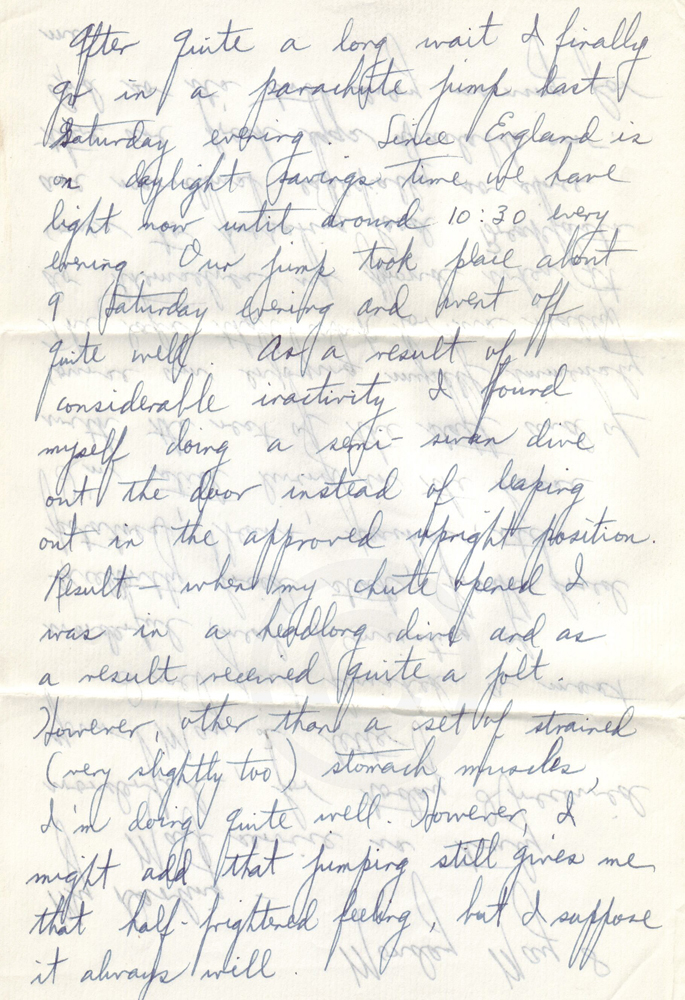 After quite a long wait I finally
go in a parachute jump last
Saturday evening. Since England is
on daylight savings time we have
light now until around 10:30 every
evening. Our jump took place about
9 Saturday evening and went off
quite well. As a result of
considerable inactivity I found
myself doing a semi-swan dive
out the door instead of leaping
out in the approved upright position.
Result – when my chute opened I
was in a headlong dive and as
a result received quite a jolt.
However, other than a set of strained
(very slightly too) stomach muscles,
I'm doing quite well. However, I
might add that jumping still gives me
that half-frightened feeling, but I suppose
it always will.